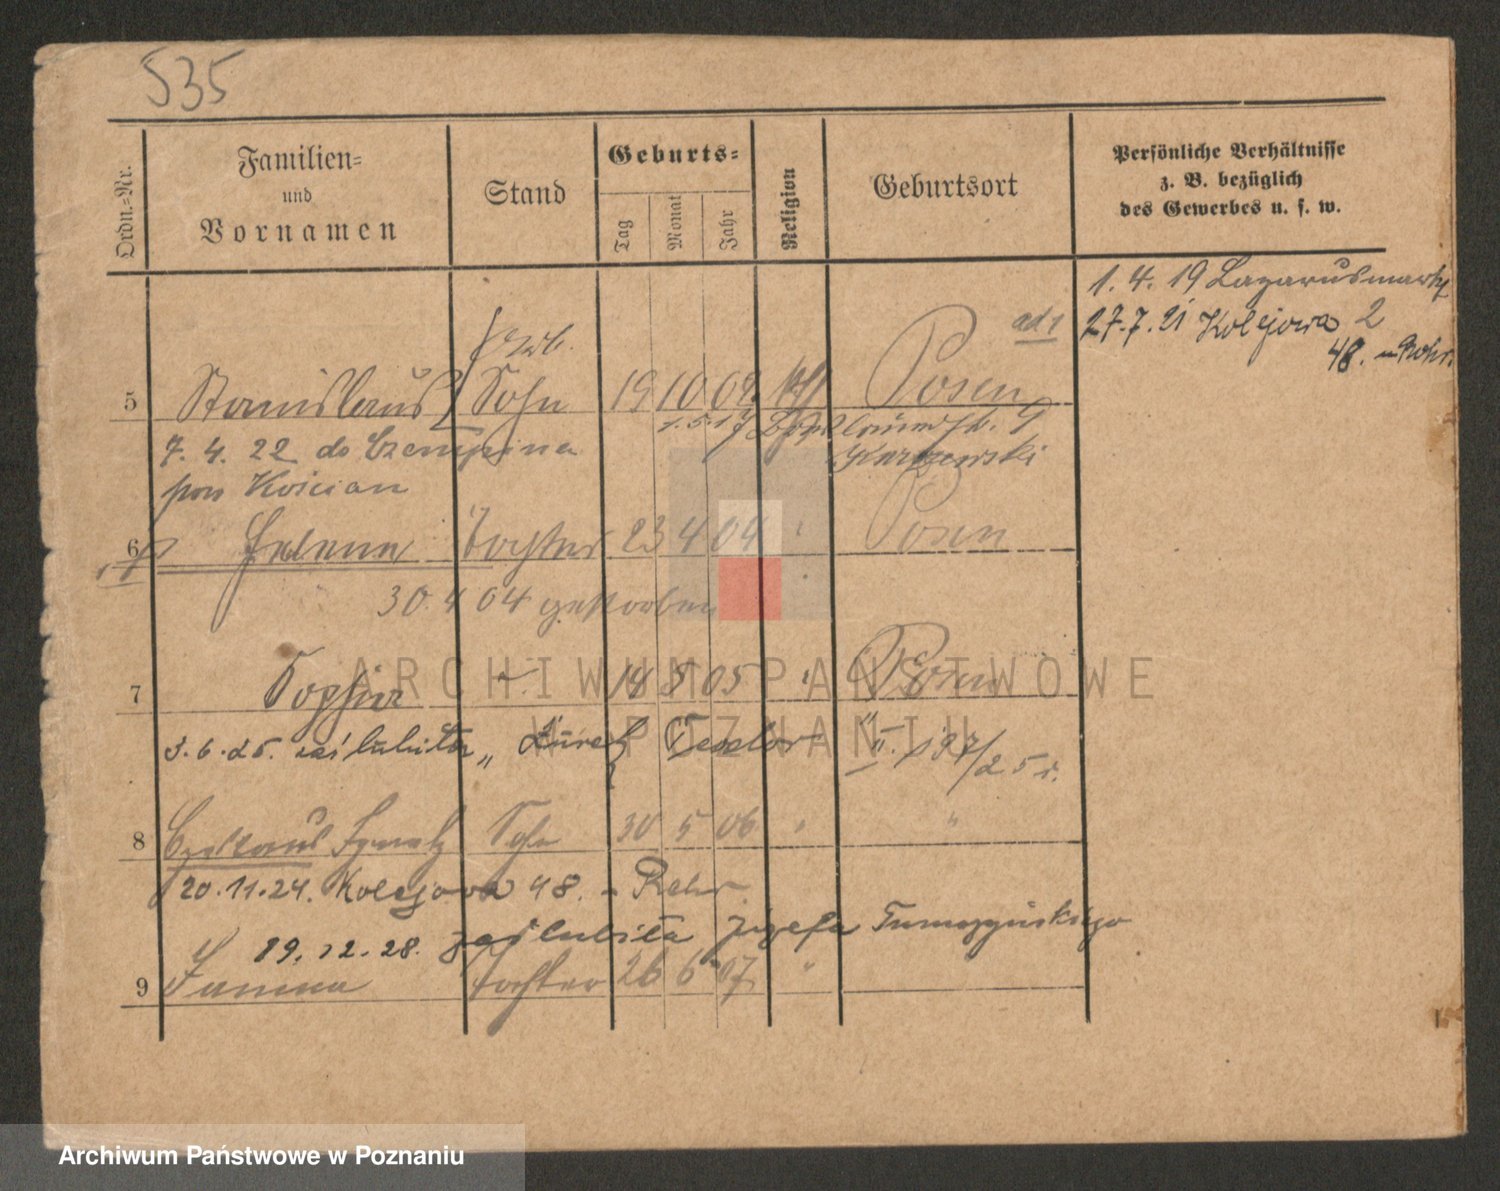 535
Ordn.-Nr.
Familien-
und
Vornamen
Stand
Geburts-
Tag
Monat
Jahr
Religion
Geburtsort
Persönliche Verhältnisse
z. B. bezüglich
des Gewerbes u. s. w.
1. 4. 19 Lazarusmarkt 2
ad 1 27.7.21 Kolejowa
48.
5 Stanislaus Sohn 19 10 02 kath Posen
7. 4. 22 do Czempina
pow Kościan
6 Helene Tochter 23 4 04 " Posen
30. 4 04 gestorben
7 Sophie 14 8 05 " Posen
3. 6. 25. zaślubiła Teodor II. 197/25 r.
8 Czeslaus Ignatz Sohn 30 5 06 " "
20.11.24. Kolejowa 48.
19. 12. 28. zaślubiła Józefa
9 Janina Tochter 26 6 07 "
ARCHIWUM PAŃSTWOWE
W POZNANIU
Archiwum Państwowe w Poznaniu